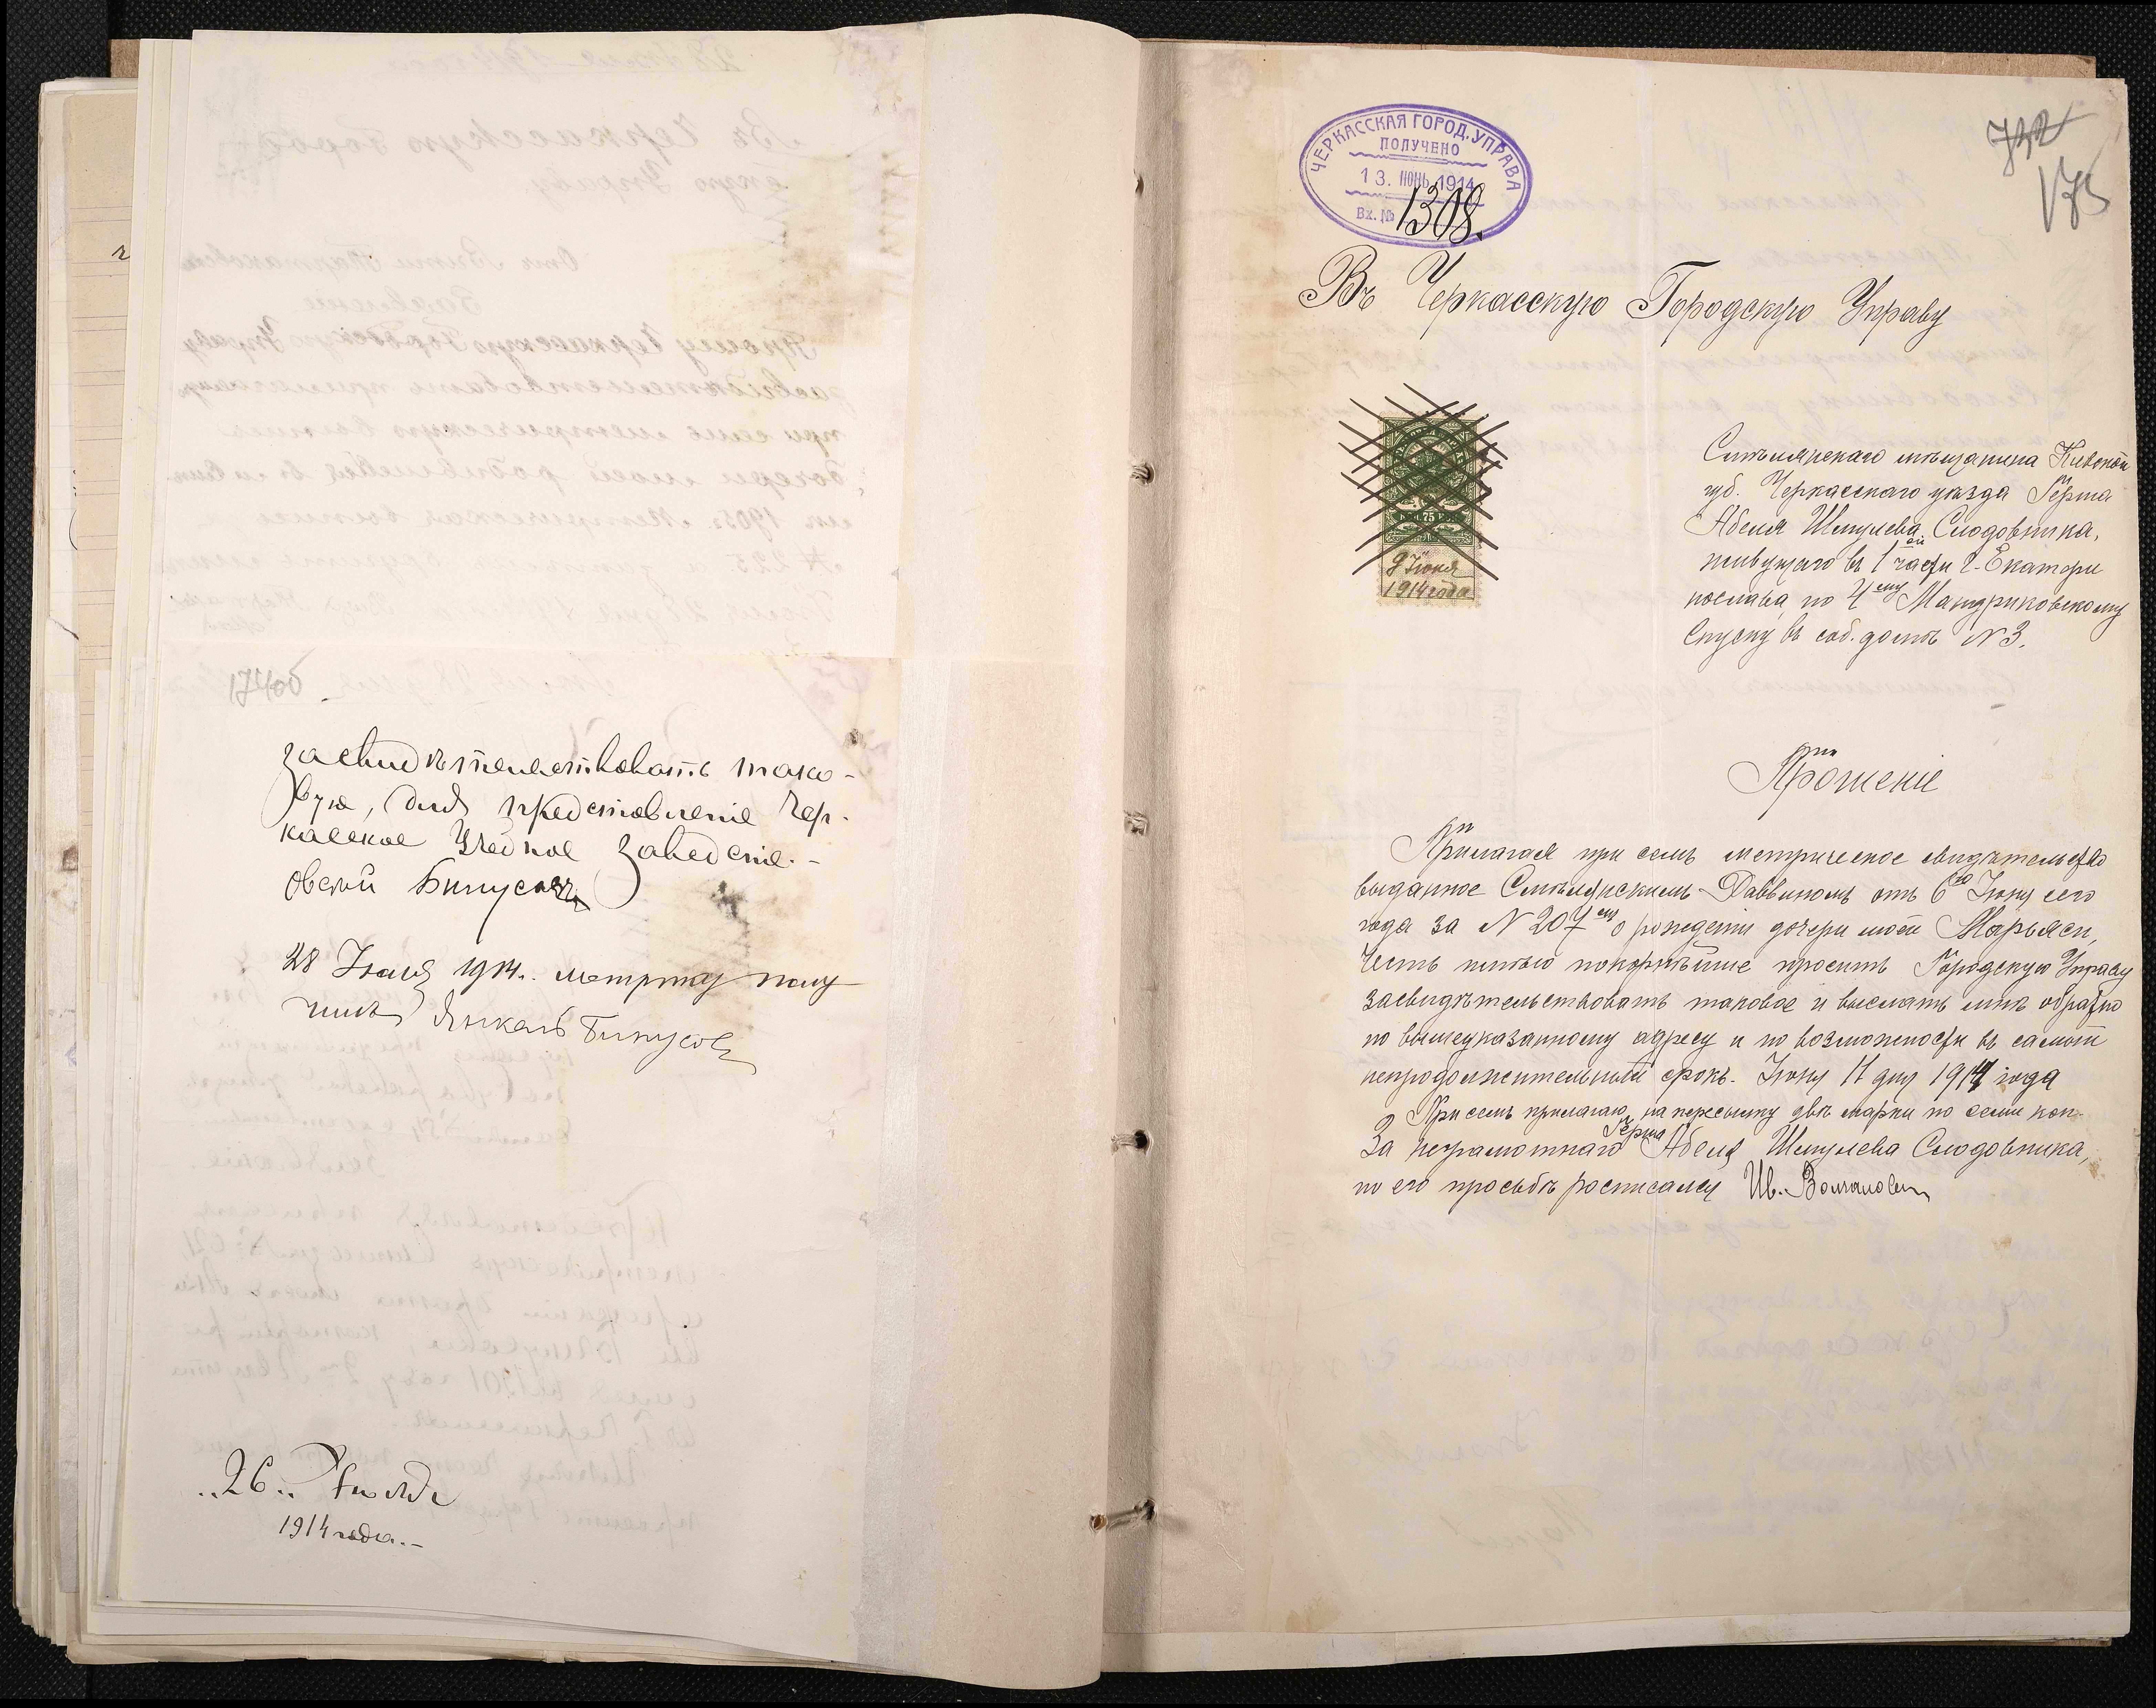 174об
засвидѣтельствовать тако-
вую, для представленіе Чер-
каское Учебное Заведеніе.-
Овсѣй Бинусовъ
28 Іюля 1914. метрику полу-
чилъ Янкель Бинусовъ
"26" Іюля
1914 года.-
732
173
ЧЕРКАССКАЯ ГОРОД. УПРАВА
ПОЛУЧЕНО
13. ИЮНЬ 1914
Вх. № 1308.
Въ Черкасскую Городскую Управу
75
9 Іюня
1914 года
Смѣлянскаго мѣщанина Кіевской
губ. Черкасскаго уѣзда Герша
Абеля Шмулева Слодовника,
живущаго въ 1ой части г. Екатери
нослава по 4му Мандриковскому
Спуску въ соб. домѣ N 3.
Прошеніе
Прилагая при семъ метрическое свидѣтельство
выданное Смѣлянскимъ Раввиномъ отъ 6го Іюня сего
года за N 207мъ о рожденіи дочери моей Марьяси,
честь имѣю покорнѣйше просить Городскую Управу
засвидѣтельствовать таковое и выслать мнѣ обратно
по вышеуказанному адресу и по возможности въ самый
непродолжительный срокъ. Іюня 11 дня 1914 года
При семъ прилагаю на пересылку двѣ марки по семи коп.
За неграмотнаго Герша Абеля Шмулева Слодовника,
по его просьбѣ росписался Ив.